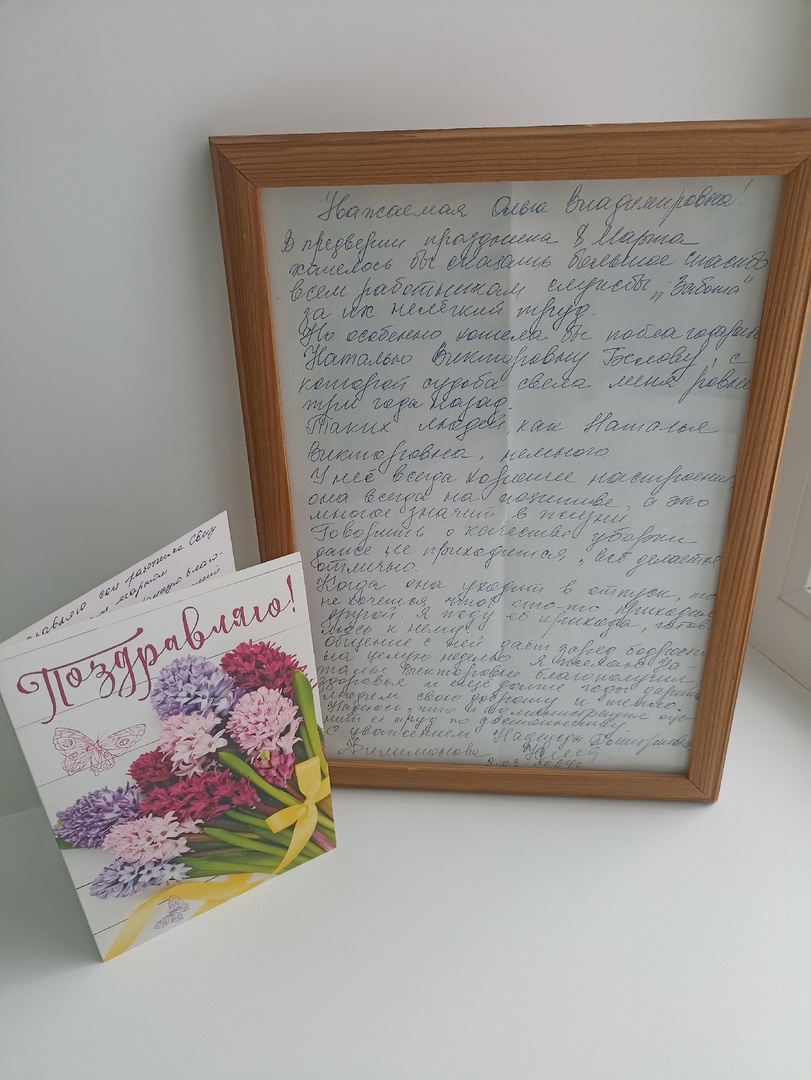 Уважаемая Ольга Владимировна!
В предверии праздника 8 Марта
хотелось бы сказать большое спасибо
всем работникам службы „Забота"
за их нелёгкий труд.
Но особенно хотела бы поблагодарить
Наталью Викторовну Белову, с
которой судьба свела меня ровно
три года назад.
Таких людей как Наталья
Викторовна, немного
У неё всегда хорошее настроение
она всегда на позитиве, а это
многое значит в жизни.
Говорить о качестве уборки
даже не приходится, всё делается
отлично.
Когда она уходит в отпуск, то
не хочется, чтоб кто-то приходил
другой. Я жду её прихода, готов-
люсь к нему.
общение с ней даёт заряд бодрости
на целую неделю. Я желаю На-
талье Викторовне благополучия,
здоровья и ещё долгие годы дарить
людям свою доброту и тепло.
Надеюсь, что и администрация оце-
нит её труд по достоинству.
С уважением Надежда Дмитриевна
Филимонова
8.03.2024г
Поздравляю!